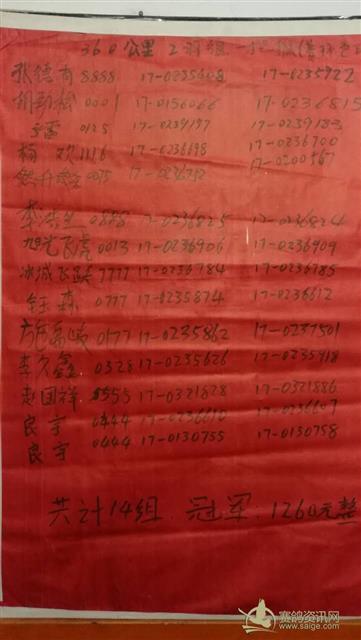 360公里 2羽组
张德有 8888 17-0235608 17-0235922
胡劲松 0001 17-0156066 17-0236815
雷 0125 17-0239197 17-0239183
杨欢 1116 17-0236698 17-0236700
0075 17-0236712 17-0200567
李洪生 0888 17-0236825 17-0236824
旭光飞虎 0013 17-0236906 17-0236909
冰城飞跃 7777 17-0236784 17-0236785
钰森 0777 17-0235874 17-0236612
0177 17-0235862 17-0237501
李久鑫 0328 17-0235626 17-0235918
赵国祥 5555 17-0321828 17-0321886
良宇 0444 17-0236610 17-0236607
良宇 0444 17-0130755 17-0130758
共计14组 冠军:1260元整
赛鸽资讯网
www.saige.com